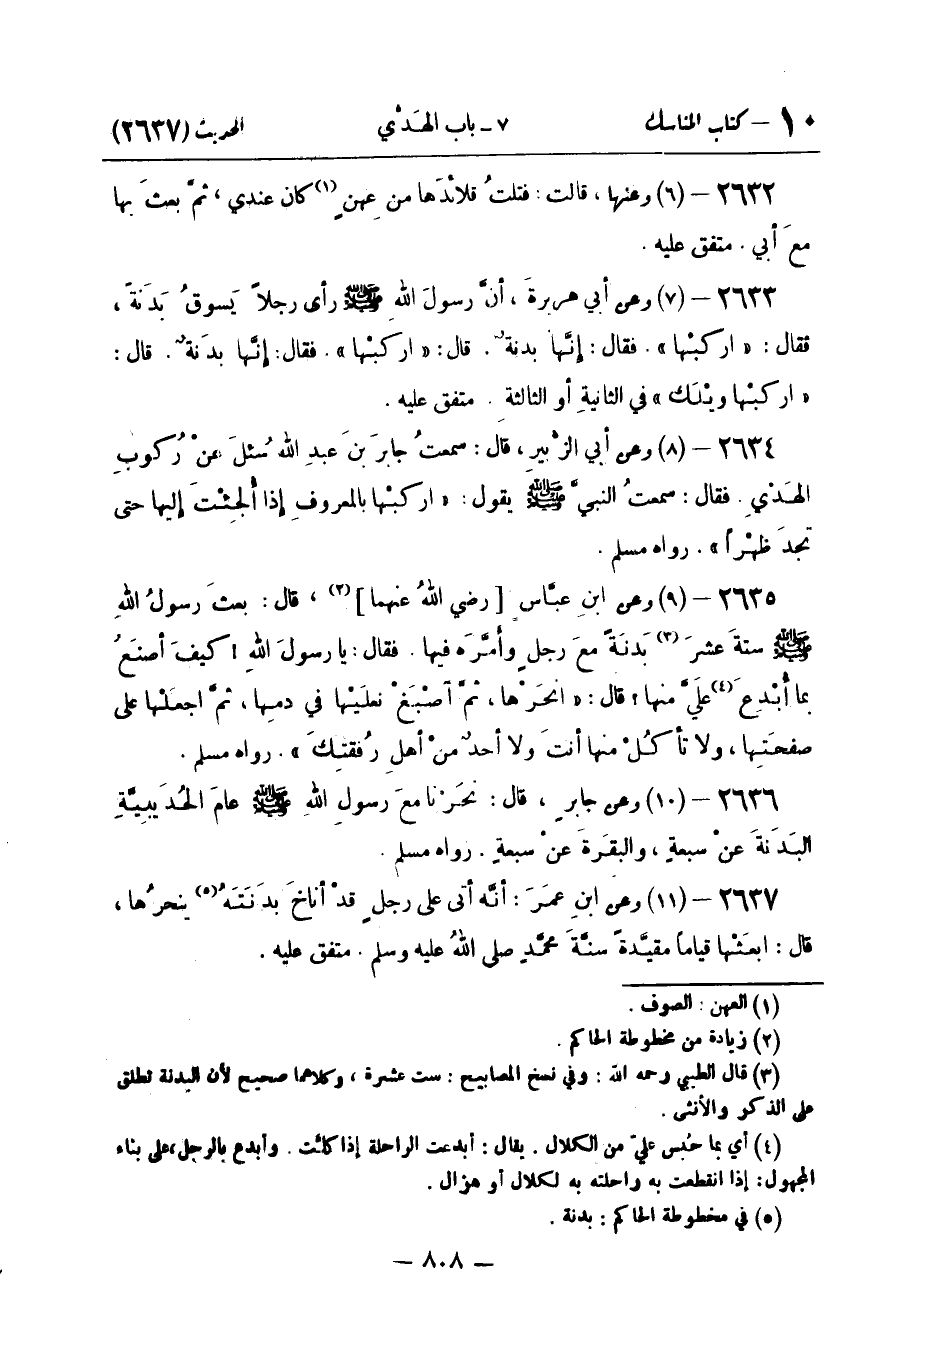 ١٠ – كتاب المناسك ٧ ـ باب الهَدْي الحديث (٢٦٣٧)
٢٦٣٢ – (٦) وعنها ، قالت : فتلتُ قلائدَها من عِهنٍ (١) كان عندي ، ثمَّ بعثَ بها
معَ أبي . متفق عليه .
٢٦٣٣ – (٧) وعن أبي هريرةَ ، أنَّ رسولَ اللهِ ﷺ رأى رجلاً يَسوقُ بَدَنَةً ،
فقال : « اركبْها » . فقال : إنَّها بدنةٌ . قال : « اركبْها » . فقال : إنَّها بدَنةٌ . قال :
« اركبْها ويْلَك » في الثانيةِ أو الثالثةِ . متفق عليه .
٢٦٣٤ – (٨) وعن أبي الزُّبيرِ ، قال : سمعتُ جابرَ بنَ عبدِ اللهِ سُئلَ عنْ رُكوبِ
الهَدْيِ . فقال : سمعتُ النبيَّ ﷺ يقول : « اركبْها بالمعروفِ إذا أُلجِئْتَ إليها حتى
تجدَ ظهْراً » . رواه مسلم .
٢٦٣٥ – (٩) وعن ابنِ عبَّاسٍ [ رضي اللهُ عنهما ] (٢) ، قال : بعثَ رسولُ اللهِ
ﷺ ستةَ عشرَ (٣) بَدَنةً معَ رجلٍ وأمَّرَه فيها . فقال : يا رسولَ اللهِ ! كيفَ أصنَعُ
بما أُبْدِعَ (٤) عليَّ منها ؟ قال : « انحَرْها ، ثمَّ اصْبَغْ نعلَيْها في دمِها ، ثمَّ اجعلْها على
صفحَتِها ، ولا تأكُلْ منها أنتَ ولا أحدٌ منْ أهلِ رُفقتِكَ » . رواه مسلم .
٢٦٣٦ – (١٠) وعن جابرٍ ، قال : نحَرْنا معَ رسولِ اللهِ ﷺ عامَ الحُدَيبيَّةِ
البَدَنةَ عنْ سبعةٍ ، والبقَرةَ عنْ سبعةٍ . رواه مسلم .
٢٦٣٧ – (١١) وعن ابنِ عمَرَ : أنَّه أتى على رجلٍ قدْ أناخَ بدَنَتَهُ (٥) ينحرُها ،
قال : ابعَثْها قياماً مقيَّدةً سنَّةَ محمَّدٍ صلى اللهُ عليه وسلم . متفق عليه .
(١) العهن : الصوف .
(٢) زيادة من مخطوطة الحاكم .
(٣) قال الطيبي رحمه الله : وفي نسخ المصابيح : ست عشرة ، وكلاهما صحيح لأن البدنة تطلق
على الذكر والأنثى .
(٤) أي بما حُبس عليّ من الكلال . يقال : أبدعت الراحلة إذا كلَّت . وأبدع بالرجل،على بناء
المجهول: إذا انقطعت به راحلته به لكلال أو هزال .
(٥) في مخطوطة الحاكم : بدنة .
– ٨٠٨ –